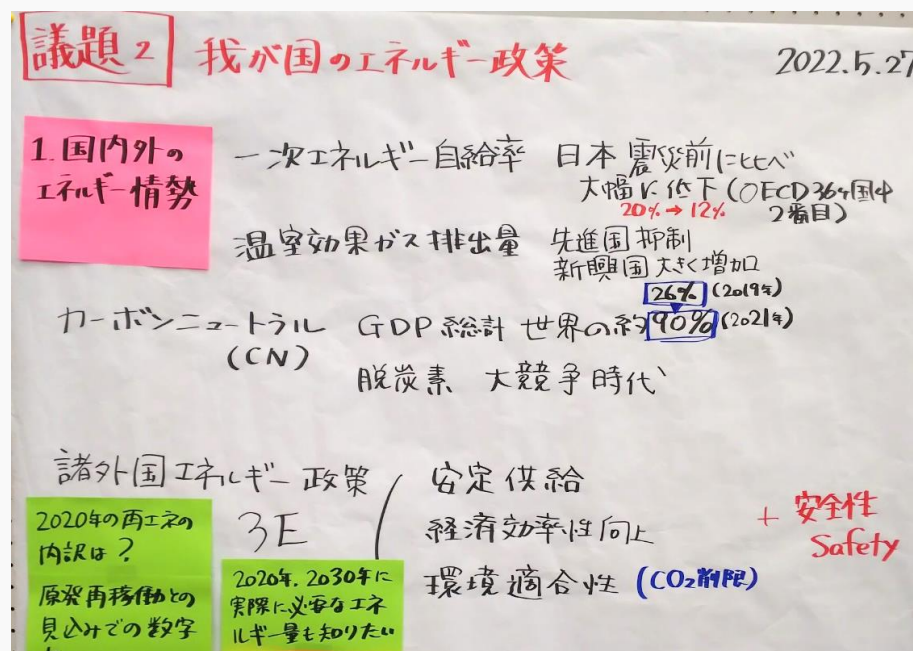 議題2 我が国のエネルギー政策 2022.5.27
1.国内外の
エネルギー情勢
一次エネルギー自給率 日本 震災前に比べ
大幅に低下(OECD36ヶ国中
20%→12% 2番目)
温室効果ガス排出量 先進国 抑制
新興国 大きく増加
26% (2019年)
カーボンニュートラル GDP総計 世界の約90% (2021年)
(CN)
脱炭素 大競争時代
諸外国エネルギー政策
3E
安定供給
経済効率性向上
環境適合性 (CO₂削限)
+ 安全性
Safety
2020年の再エネの
内訳は?
原発再稼働との
見込みでの数字
2020年、2030年に
実際に必要なエネ
ルギー量も知りたい